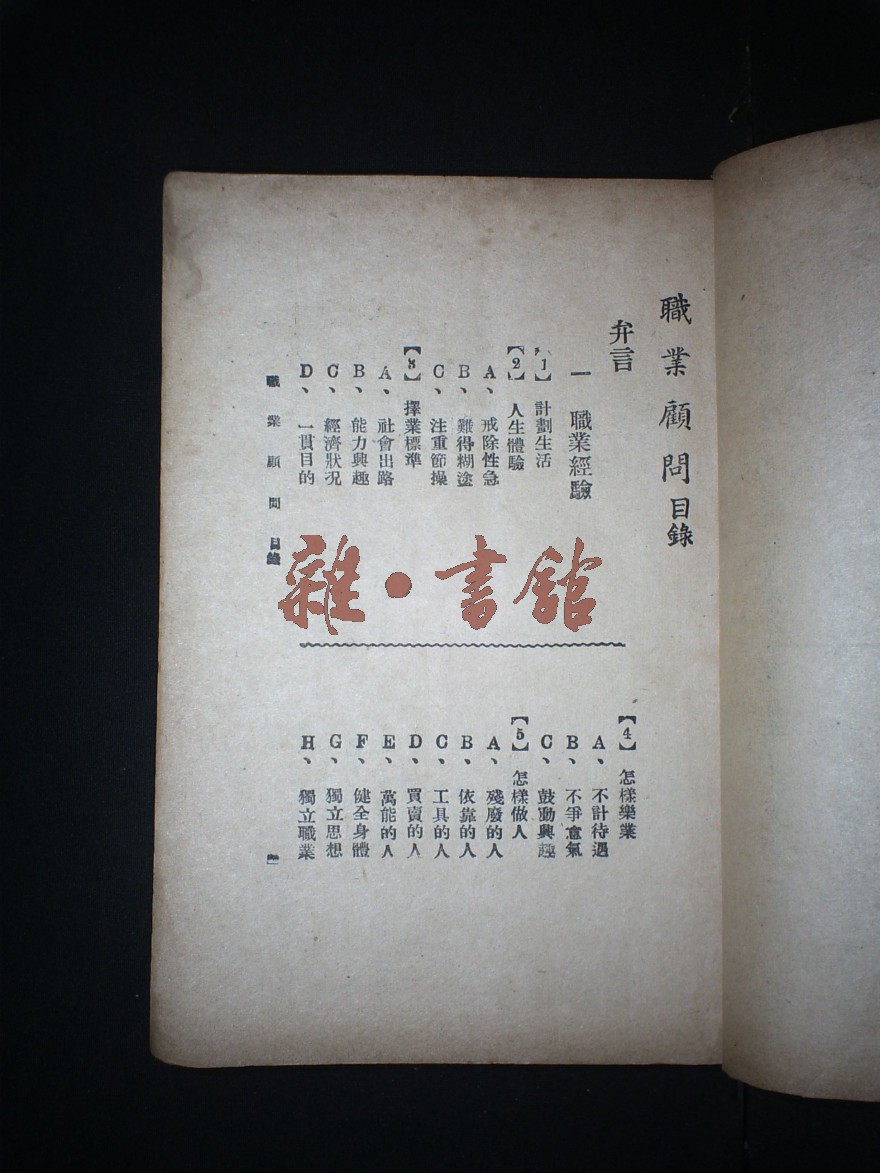 職業顧問目錄
弁言
一 職業經驗
【1】計劃生活
【2】人生體驗
A、戒除性急
B、難得糊塗
C、注重節操
【3】擇業標準
A、社會出路
B、能力興趣
C、經濟狀況
D、一貫目的
【4】怎樣樂業
A、不計待遇
B、不爭意氣
C、鼓動興趣
【5】怎樣做人
A、殘廢的人
B、依靠的人
C、工具的人
D、買賣的人
E、萬能的人
F、健全身體
G、獨立思想
H、獨立職業
職業顧問 目錄
雜·書館